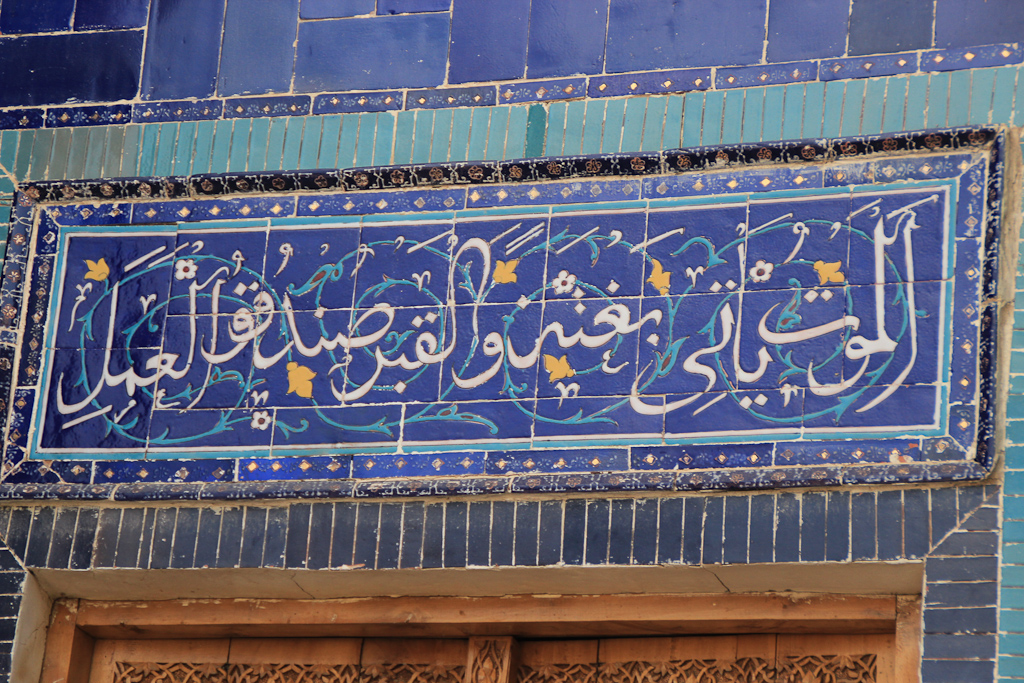 الموت یأتی بغتة والقبر صندوق العمل